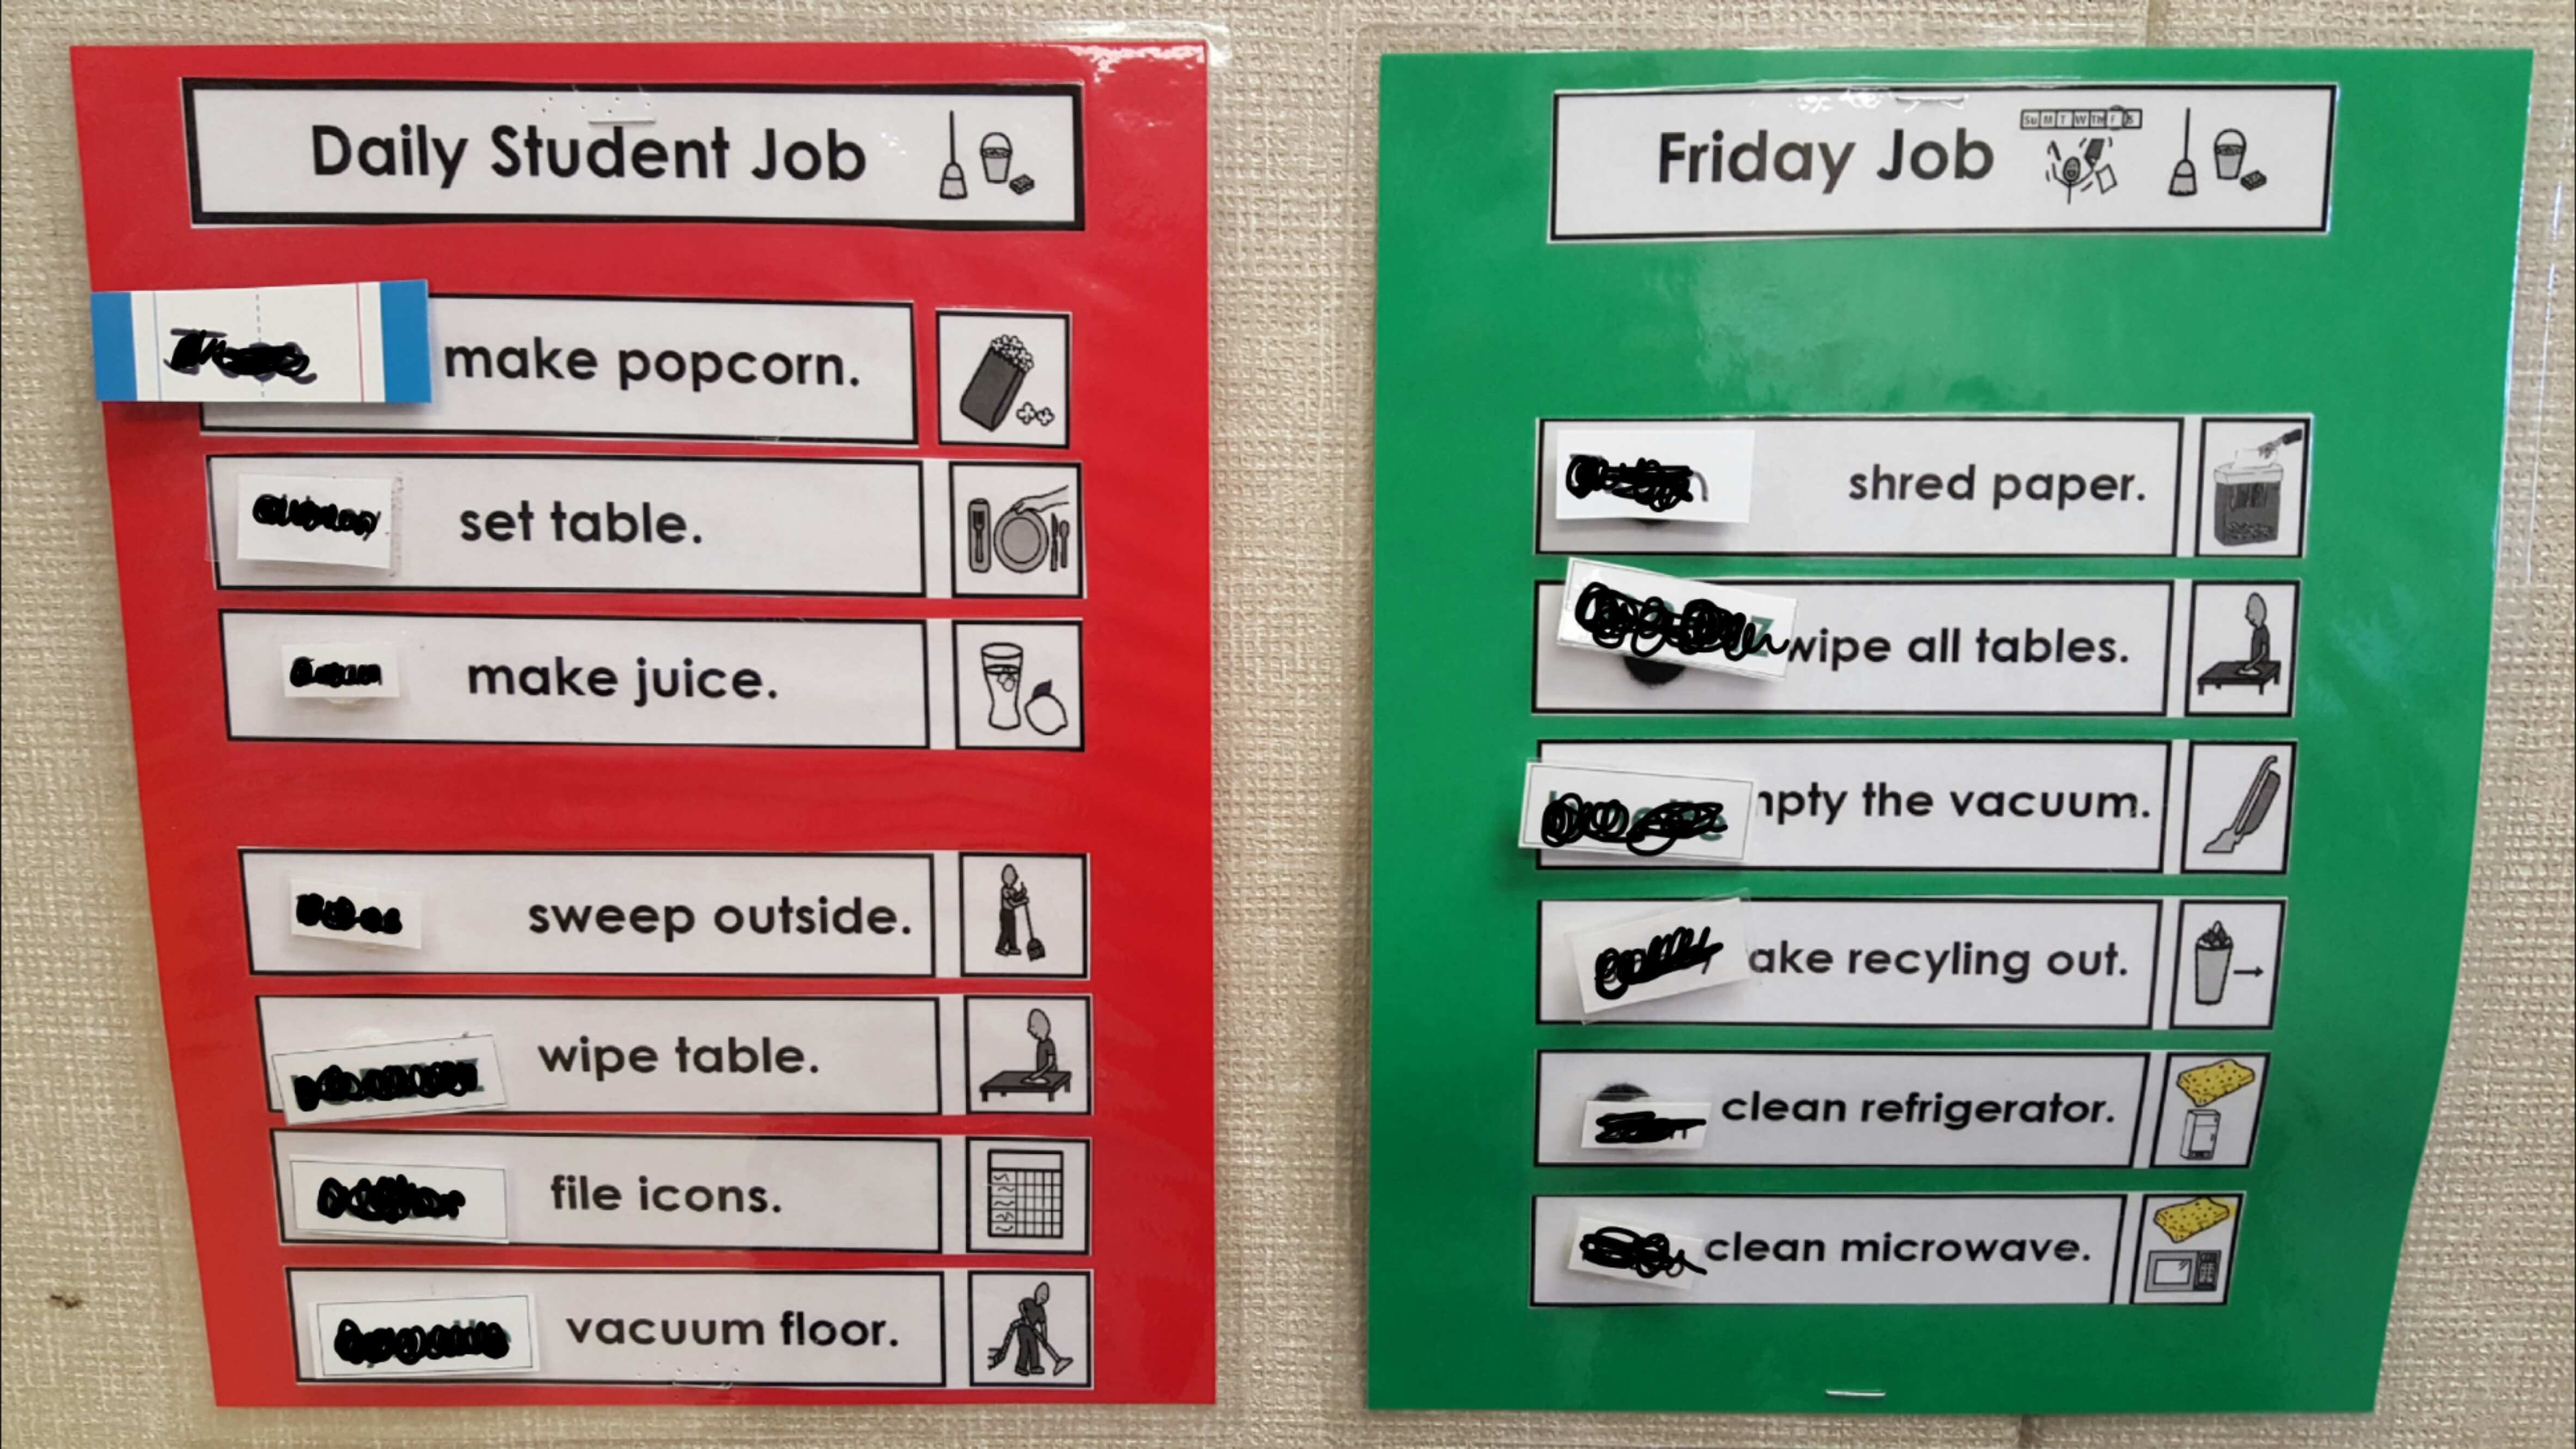 Daily Student Job
make popcorn.
set table.
make juice.
sweep outside.
wipe table.
file icons.
vacuum floor.
Friday Job
Su M T W Th F S
shred paper.
wipe all tables.
mpty the vacuum.
ake recyling out.
clean refrigerator.
clean microwave.